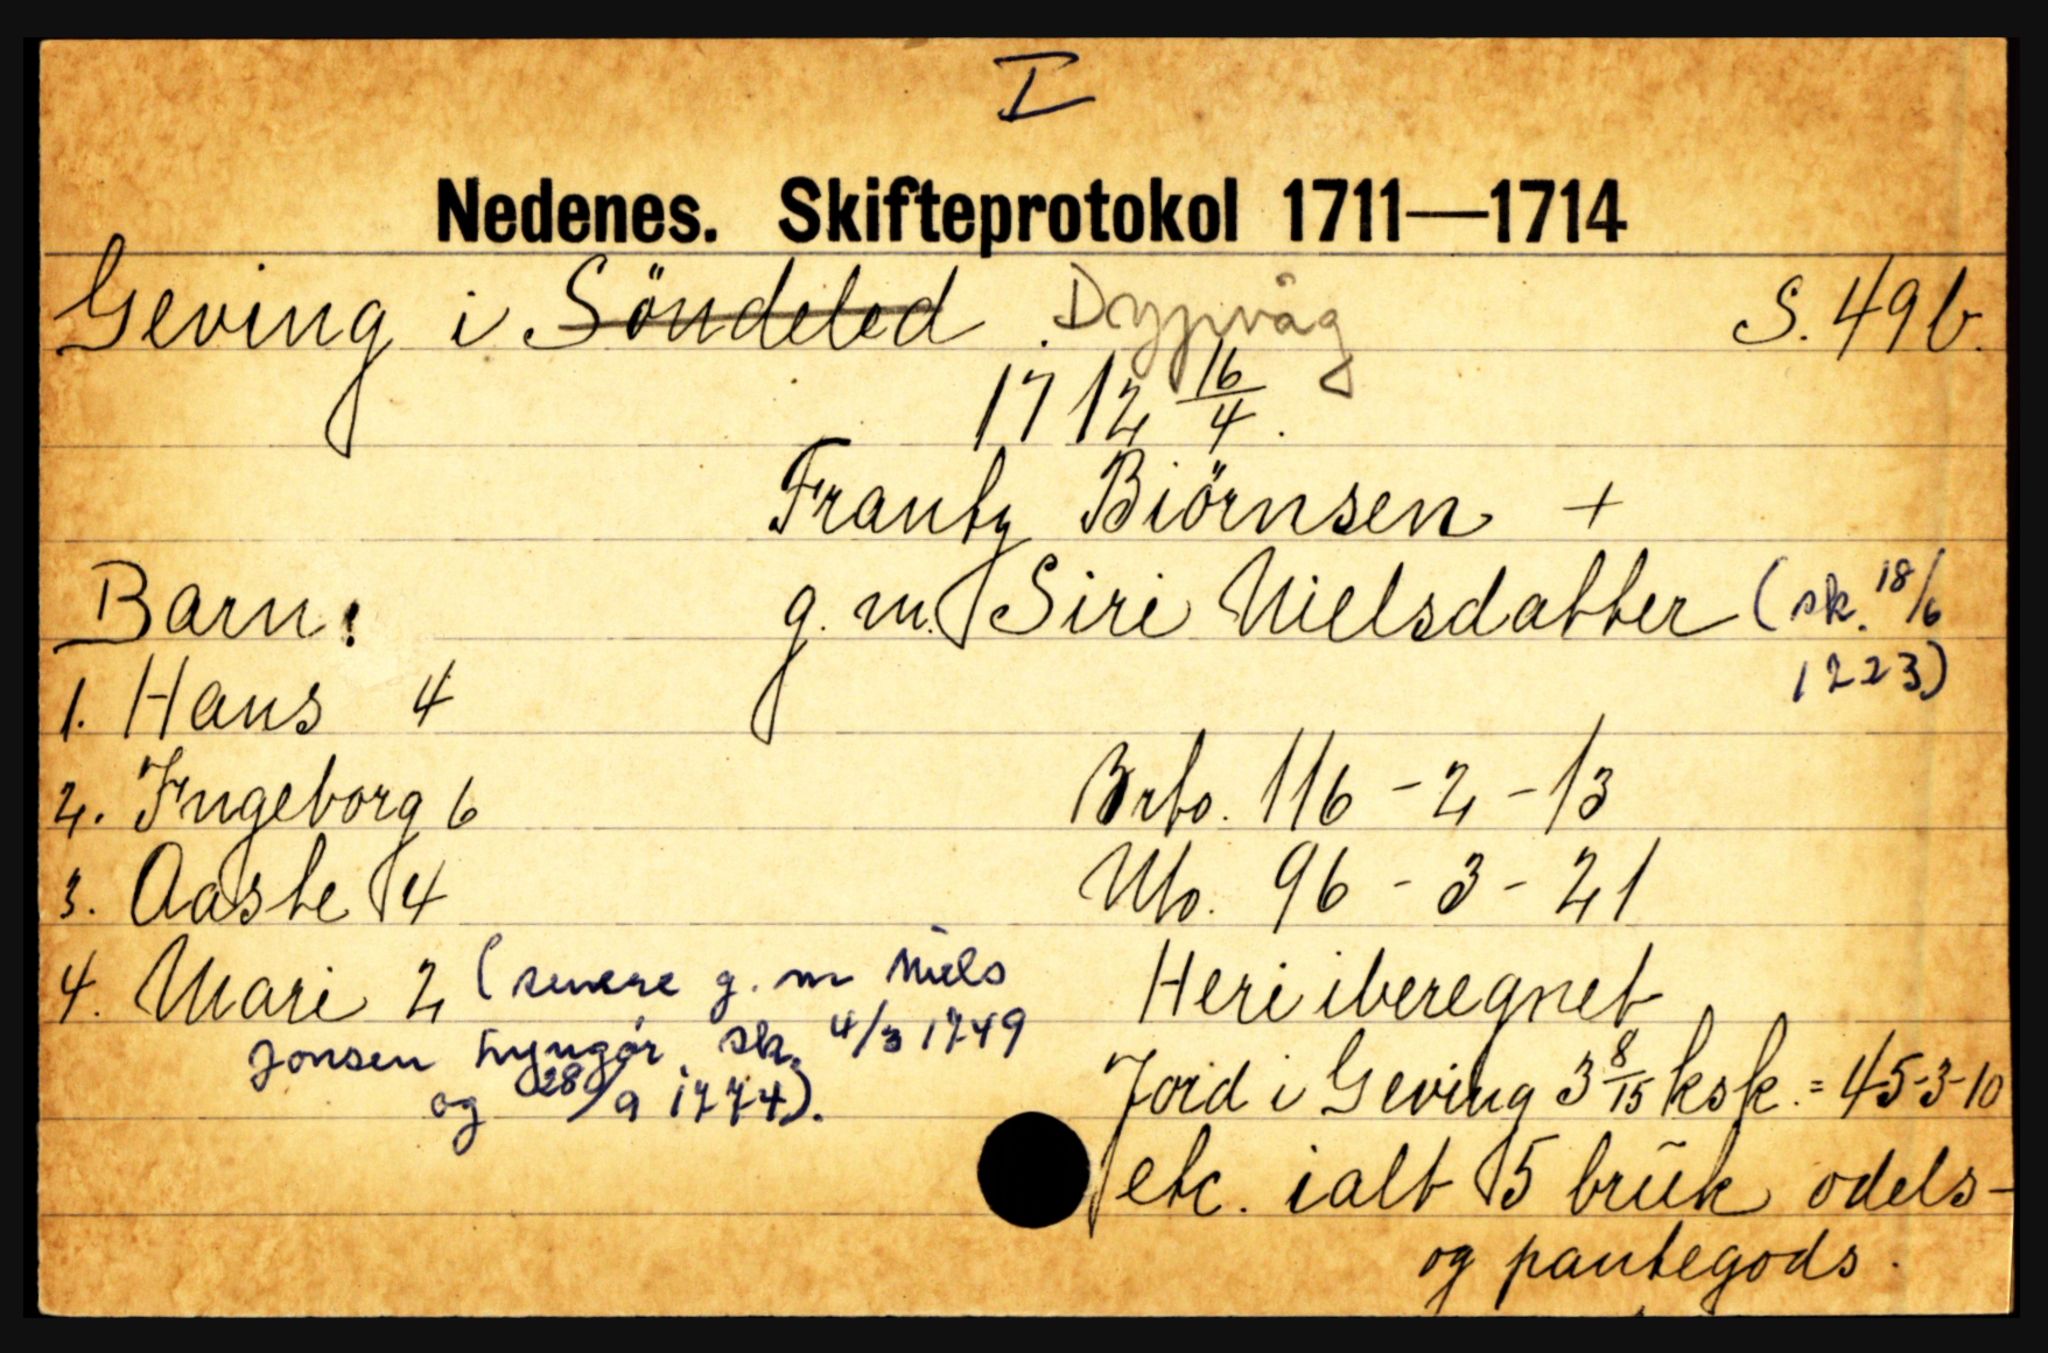 I
Nedenes. Skifteprotokol 1711—1714
Geving i Söndeled. Dypvåg S. 49b.
1712 16/4.
Frantz Biörnsen +
Barn: g. m. Siri Nielsdatter (sk. 18/6
1723)
1. Hans 4
2. Ingeborg 6 Brto. 116 - 2 - 13
3. Aaste 4 Nto. 96 - 3 - 21
4. Mari 2 (senere g. m Niels Heri iberegnet
Jonsen Lyngør, sk. 4/3 1749
og 28/9 1774). Jord i Geving 3 8/15 ksk. = 45-3-10
etc. ialt 5 brük odels-
og pantegods.